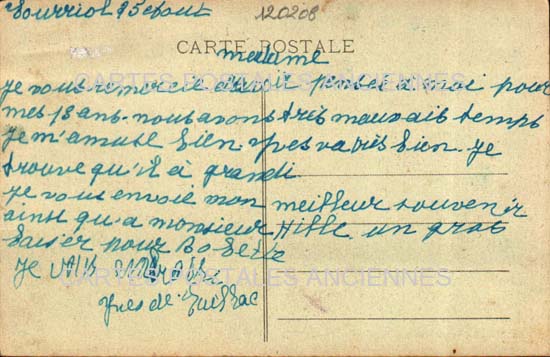 25 aout
120208
CARTE POSTALE
madame
je vous remercie d'avoir penses a moi pour
mes 18 ans. nous avons très mauvais temps
je m'amuse bien Yves va très bien. je
trouve qu'il à grandi
je vous envoie mon meilleur souvenir
ainsi qu'a monsieur Hible un gros
baiser pour
je
Yves de
CARTES POSTALES ANCIENNES
CARTES POSTALES ANCIENNES